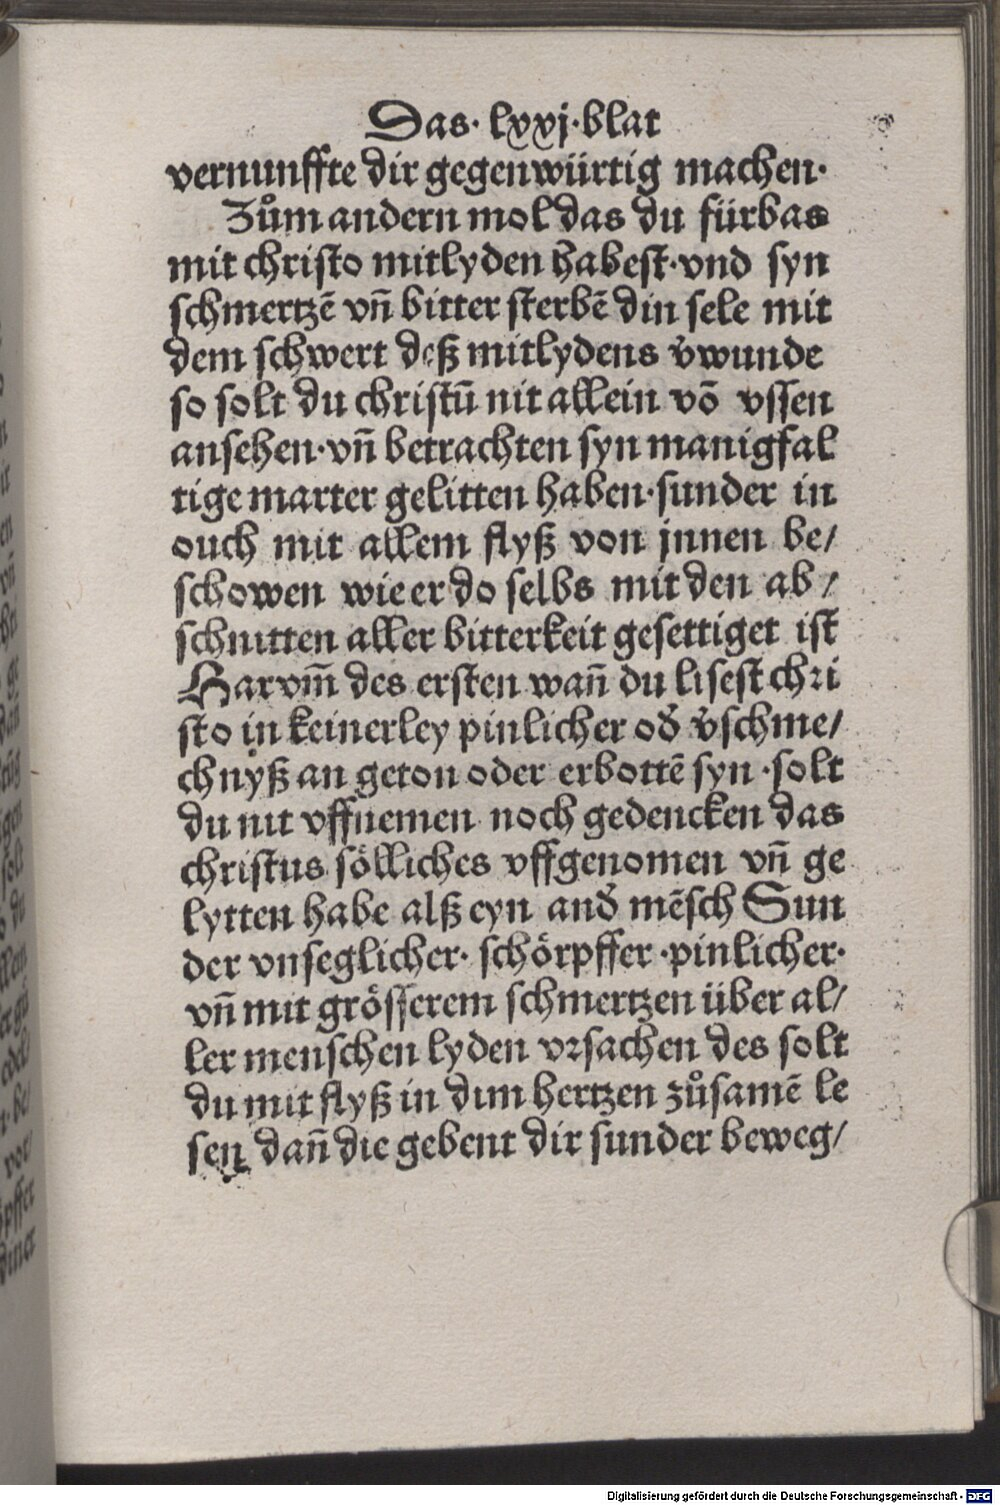 Das· lxxj·blat
vernunffte dir gegenwürtig machen·
Zům andern mol das du fürbas
mit christo mitlyden habest·vnd syn
schmertzē vn̄ bitter sterbē din sele mit
dem schwert deß mitlydens v̄wunde
so solt du christū nit allein vō vssen
ansehen·vn̄ betrachten syn manigfal
tige marter gelitten haben·sunder in
ouch mit allem flyß von jnnen be/
schowen wie er do selbs mit den ab/
schnitten aller bitterkeit gesettiget ist
Harvm̄ des ersten wan̄ du lisest chri
sto in keinerley pinlicher od̄ v̄schme/
chnyß an geton oder erbottē syn ·solt
du nit vffnemen noch gedencken das
christus sölliches vffgenomen vn̄ ge
lytten habe alß eyn and̄ mēsch Sun
der vnseglicher· schörpffer ·pinlicher·
vn̄ mit grösserem schmertzen über al/
ler menschen lyden vrsachen des solt
du mit flyß in dim hertzen zůsamē le
sen dan̄ die gebent dir sunder beweg/
Digitalisierung gefördert durch die Deutsche Forschungsgemeinschaft - DFG